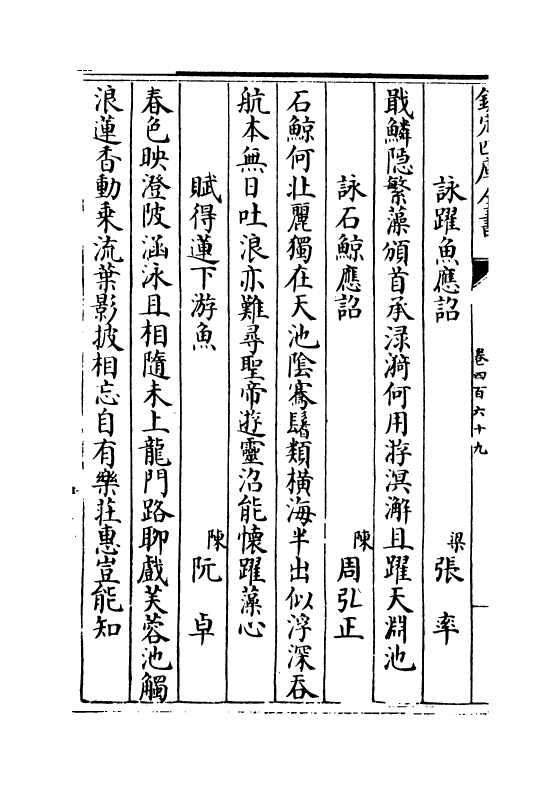 欽定四庫全書
卷四百六十九
詠躍魚應詔 梁 張率
戢鱗隠繁藻頒首承渌漪何用游溟澥且躍天淵池
詠石鯨應詔 陳 周弘正
石鯨何壮麗獨在天池隂騫鬐類橫海半出似浮深吞
航本無日吐浪亦難尋聖帝遊靈沼能懐躍藻心
賦得蓮下游魚 陳 阮卓
春色映澄陂涵泳且相隨未上龍門路聊戲芙蓉池觸
浪蓮香動乗流葉影披相忘自有樂莊惠豈能知